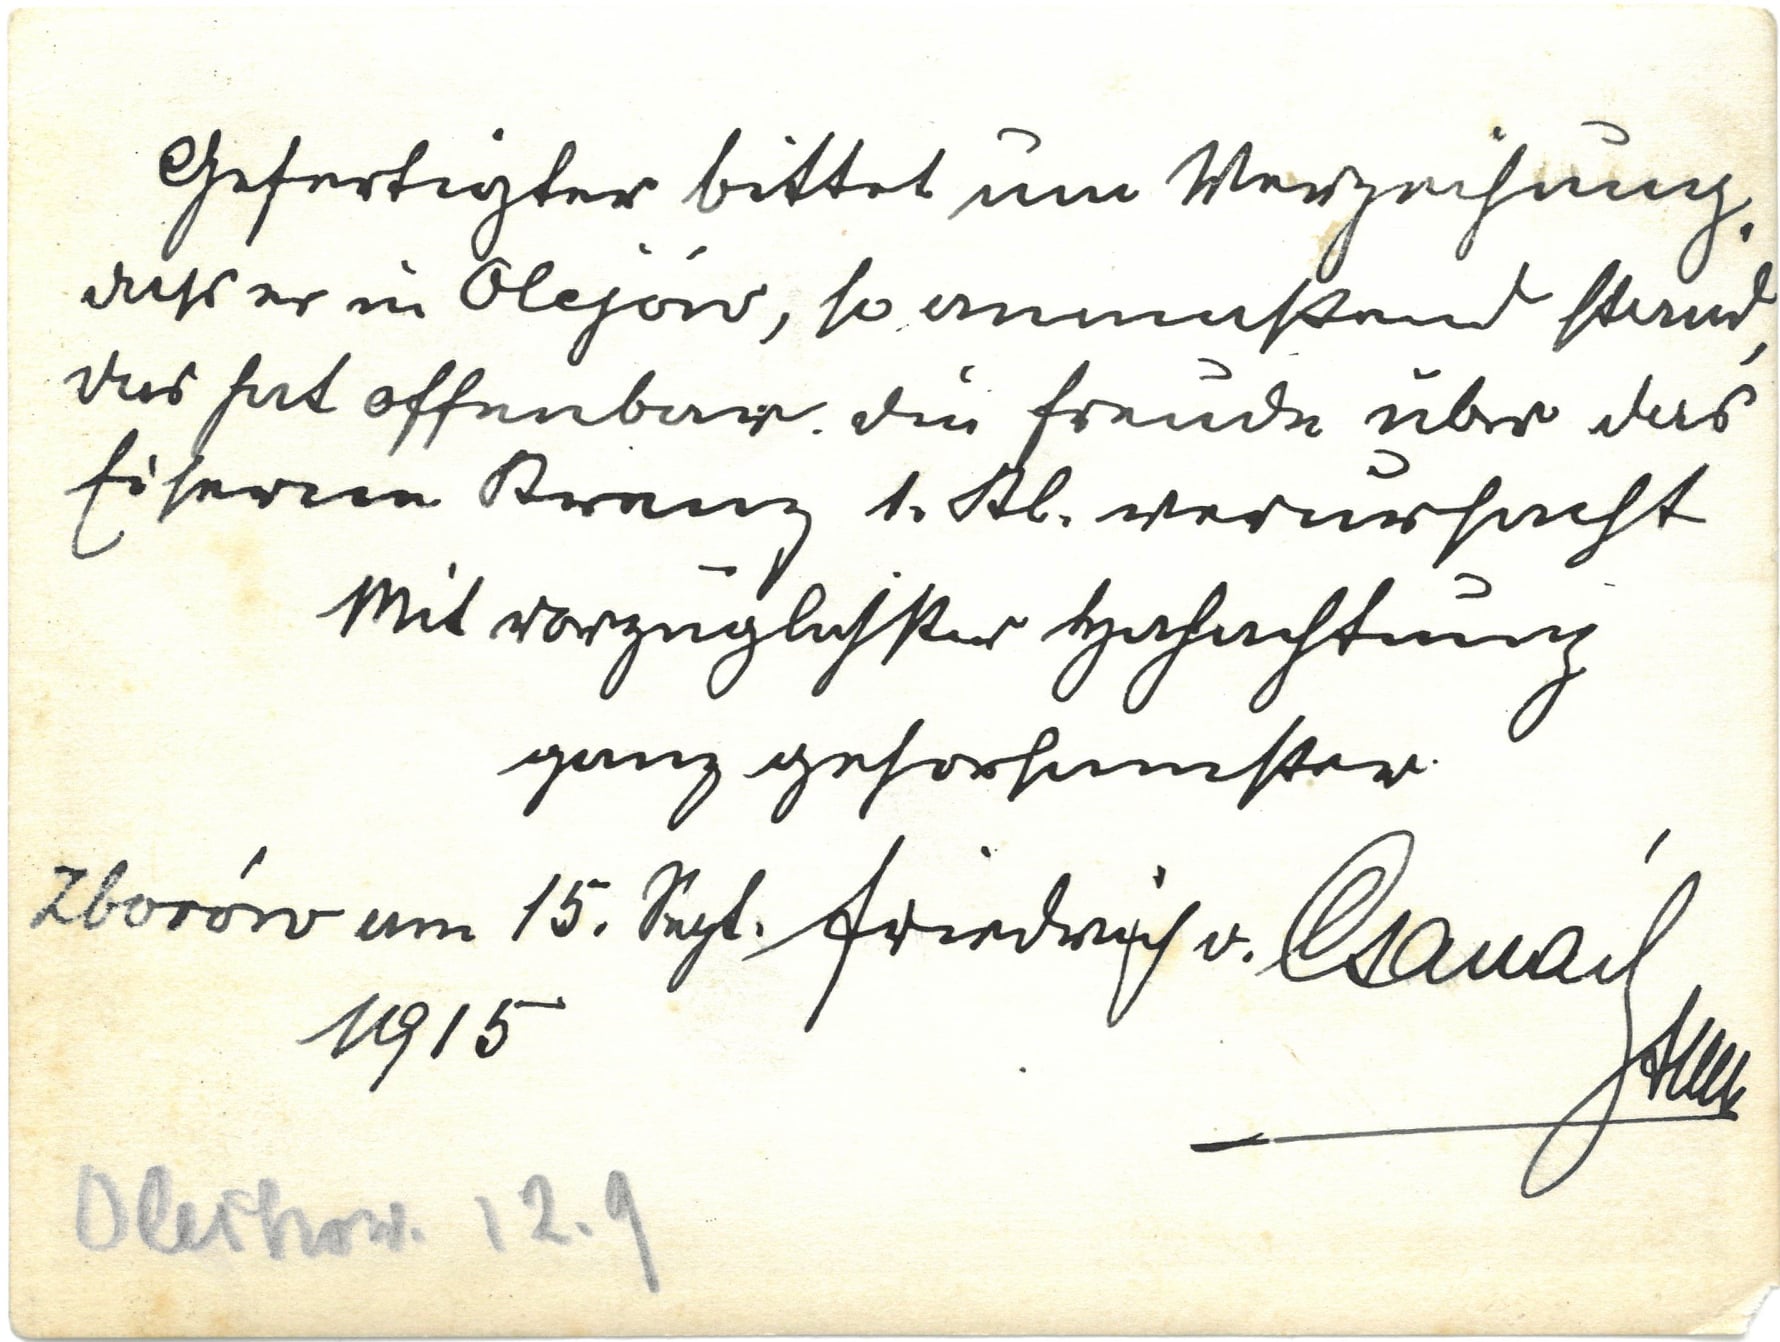 Gefertigter bittet um Verzeihung,
dass er in Olejów, so anmassend stand,
das hat offenbar die Freude über das
Eiserne Kreuz 1. Kl. verursacht
Mit vorzüglichster Hochachtung
ganz gehorsamster
Zborów am 15. Sept. Friedrich v. Csanády
1915
12.9